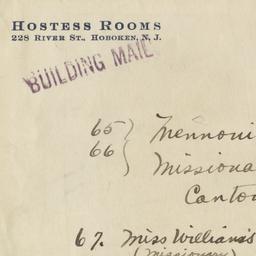 HOSTESS ROOMS
228 RIVER ST., HOBOKEN, N. J.
BUILDING MAIL
65 } Mennoni
66 } Missiona
Canto
67. Miss Williams
(Missionary)